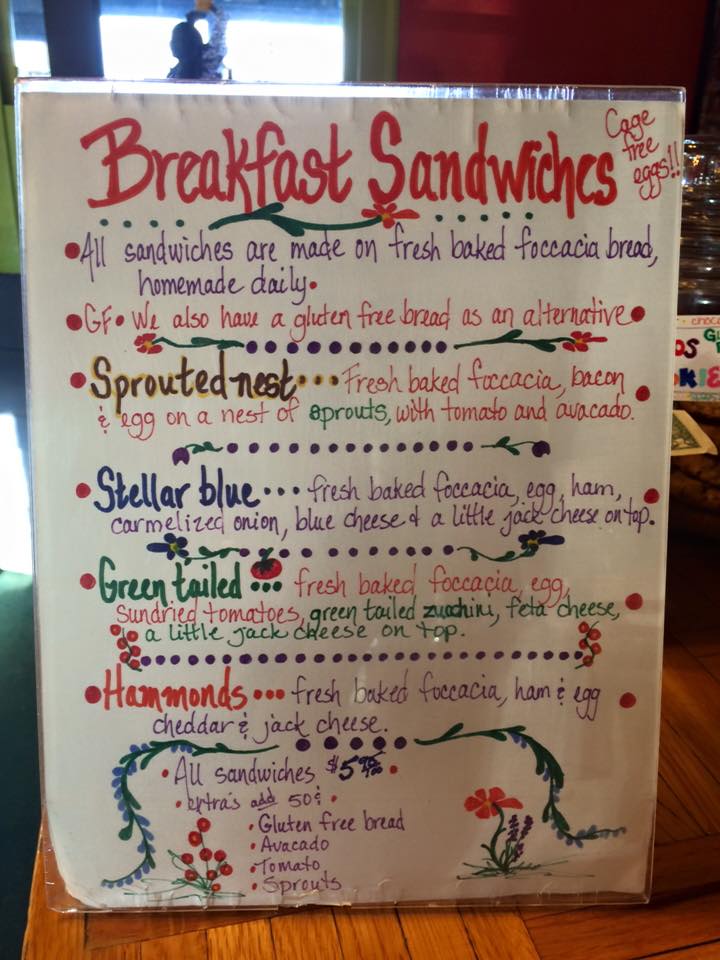 Breakfast Sandwiches
Cage
free
eggs!!
All sandwiches are made on fresh baked foccacia bread,
homemade daily.
GF. We also have a gluten free bread as an alternative
Sprouted nest... Fresh baked foccacia, bacon
& egg on a nest of sprouts, with tomato and avacado.
Stellar blue... fresh baked foccacia, egg, ham,
carmelized onion, blue cheese & a little jack cheese on top.
Green tailed... fresh baked foccacia, egg,
sundried tomatoes, green tailed zuachini, feta cheese,
a little jack cheese on top.
Hammonds... fresh baked foccacia, ham & egg
cheddar & jack cheese.
All sandwiches $5
extra's add 50¢
Gluten free bread
Avacado
Tomato
Sprouts